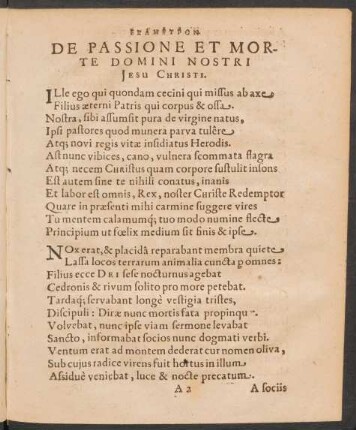 DE PASSIONE ET MOR-
TE DOMINI NOSTRI
JESU CHRISTI.
ILle ego qui quondam cecini qui missus ab axe
Filius æterni Patris qui corpus & ossa
Nostra, sibi assumsit pura de virgine natus,
Ipsi pastores quod munera parva tulêre
Atq; novi regis vitæ insidiatus Herodis.
Ast nunc vibices, cano, vulnera scommata flagra
Atq; necem CHRIstus quam corpore sustulit insons
Est autem sine te nihili conatus, inanis
Et labor est omnis, Rex, noster Christe Redemptor
Quare in præsenti mihi carmine suggere vires
Tu mentem calamumq; tuo modo numine flecte
Principium ut fœlix medium sit finis & ipse.
NOx erat, & placidâ reparabant membra quiete
Lassa locos terrarum animalia cuncta p omnes:
Filius ecce DEI sese nocturnus agebat
Cedronis & rivum solito pro more petebat.
Tardaq; servabant longè vestigia tristes,
Discipuli: Diræ nunc mortis fata propinquæ
Volvebat, nunc ipse viam sermone levabat
Sancto, informabat socios nunc dogmati verbi.
Ventum erat ad montem dederat cur nomen oliva,
Sub cujus radice virens fuit hortus in illum
Assiduè veniebat, luce & nocte precatum
A 2 A sociis